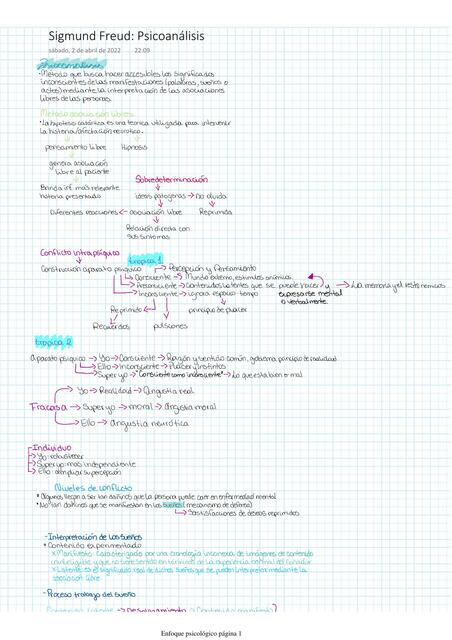 Sigmund Freud: Psicoanálisis
sábado, 2 de abril de 2022 22:09
Psicoanálisis
·Método que busca hacer accesibles los significados
inconscientes de las manifestaciones (palabras, sueños o
actos) mediante la interpretación de las asociaciones
libres de las personas.
Método asociación libres.
es una técnica utilizada para intervenir
la histeria/afectación neurótico.
pensamiento libre Hipnosis
genera asociación
libre al paciente
Brinda inf. más relevante
historia presentado
Sobredeterminación
ideas patógenas → No olvida
Diferentes reacciones ← asociación libre Reprimida
Relación directa con
sus síntomas
Conflicto intrapsíquico
tropica 1
Construcción aparato psíquico → Percepción y Pensamiento
→ Consciente → Mundo externo, estímulos anímicos.
→ Preconsciente → Contenidos latentes que se puede hacer y → La memoria y el
expresarse mental
o verbalmente.
→ Inconsciente → espacio tiempo
Reprimido principio de placer
Recuerdos pulsiones
tropica 2
Aparato psíquico → Yo → Consciente → Razón y sentido común, gobierna principio de realidad.
→ Ello → Inconsciente → Placer/Instintos
→ Superyo → "Consciente como inconsciente" → Lo que está bien o mal
Yo → Realidad → Angustia real
Fracasa → Superyo → moral → Angustia moral
Ello → Angustia neurótica
Individuo
→ Yo: robustecer
→ Superyo: más independiente
→ Ello: ampliar su percepción
Niveles de conflicto
* Algunos llegan a ser tan dañinos que la persona puede caer en enfermedad mental
* No tan dañinos que se manifiestan en los sueños (mecanismo de defensa)
→ Satisfacciones de deseos reprimidos
-Interpretación de los sueños
* Contenido experimentado
* Manifiesto: Caracterizado por una cronología inconexa de imágenes de contenido
y que no tiene sentido en términos de la experiencia normal del soñador
* Latente: es el significado real de dichos sueños que se pueden interpretar mediante la
asociación libre
-Proceso trabajo del sueño
Contenido latente → Desplazamiento → Contenido manifiesto
Enfoque psicológico página 1